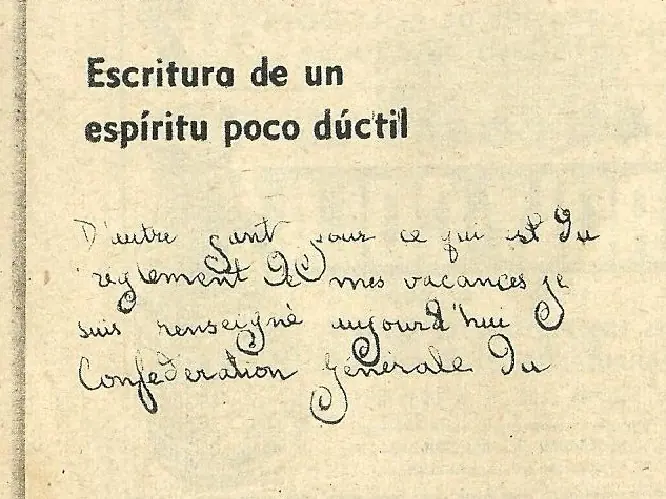 Escritura de un
espíritu poco dúctil
D'autre part pour ce qui est du
règlement de mes vacances je
suis renseigné aujourd'hui
Confédération Générale du